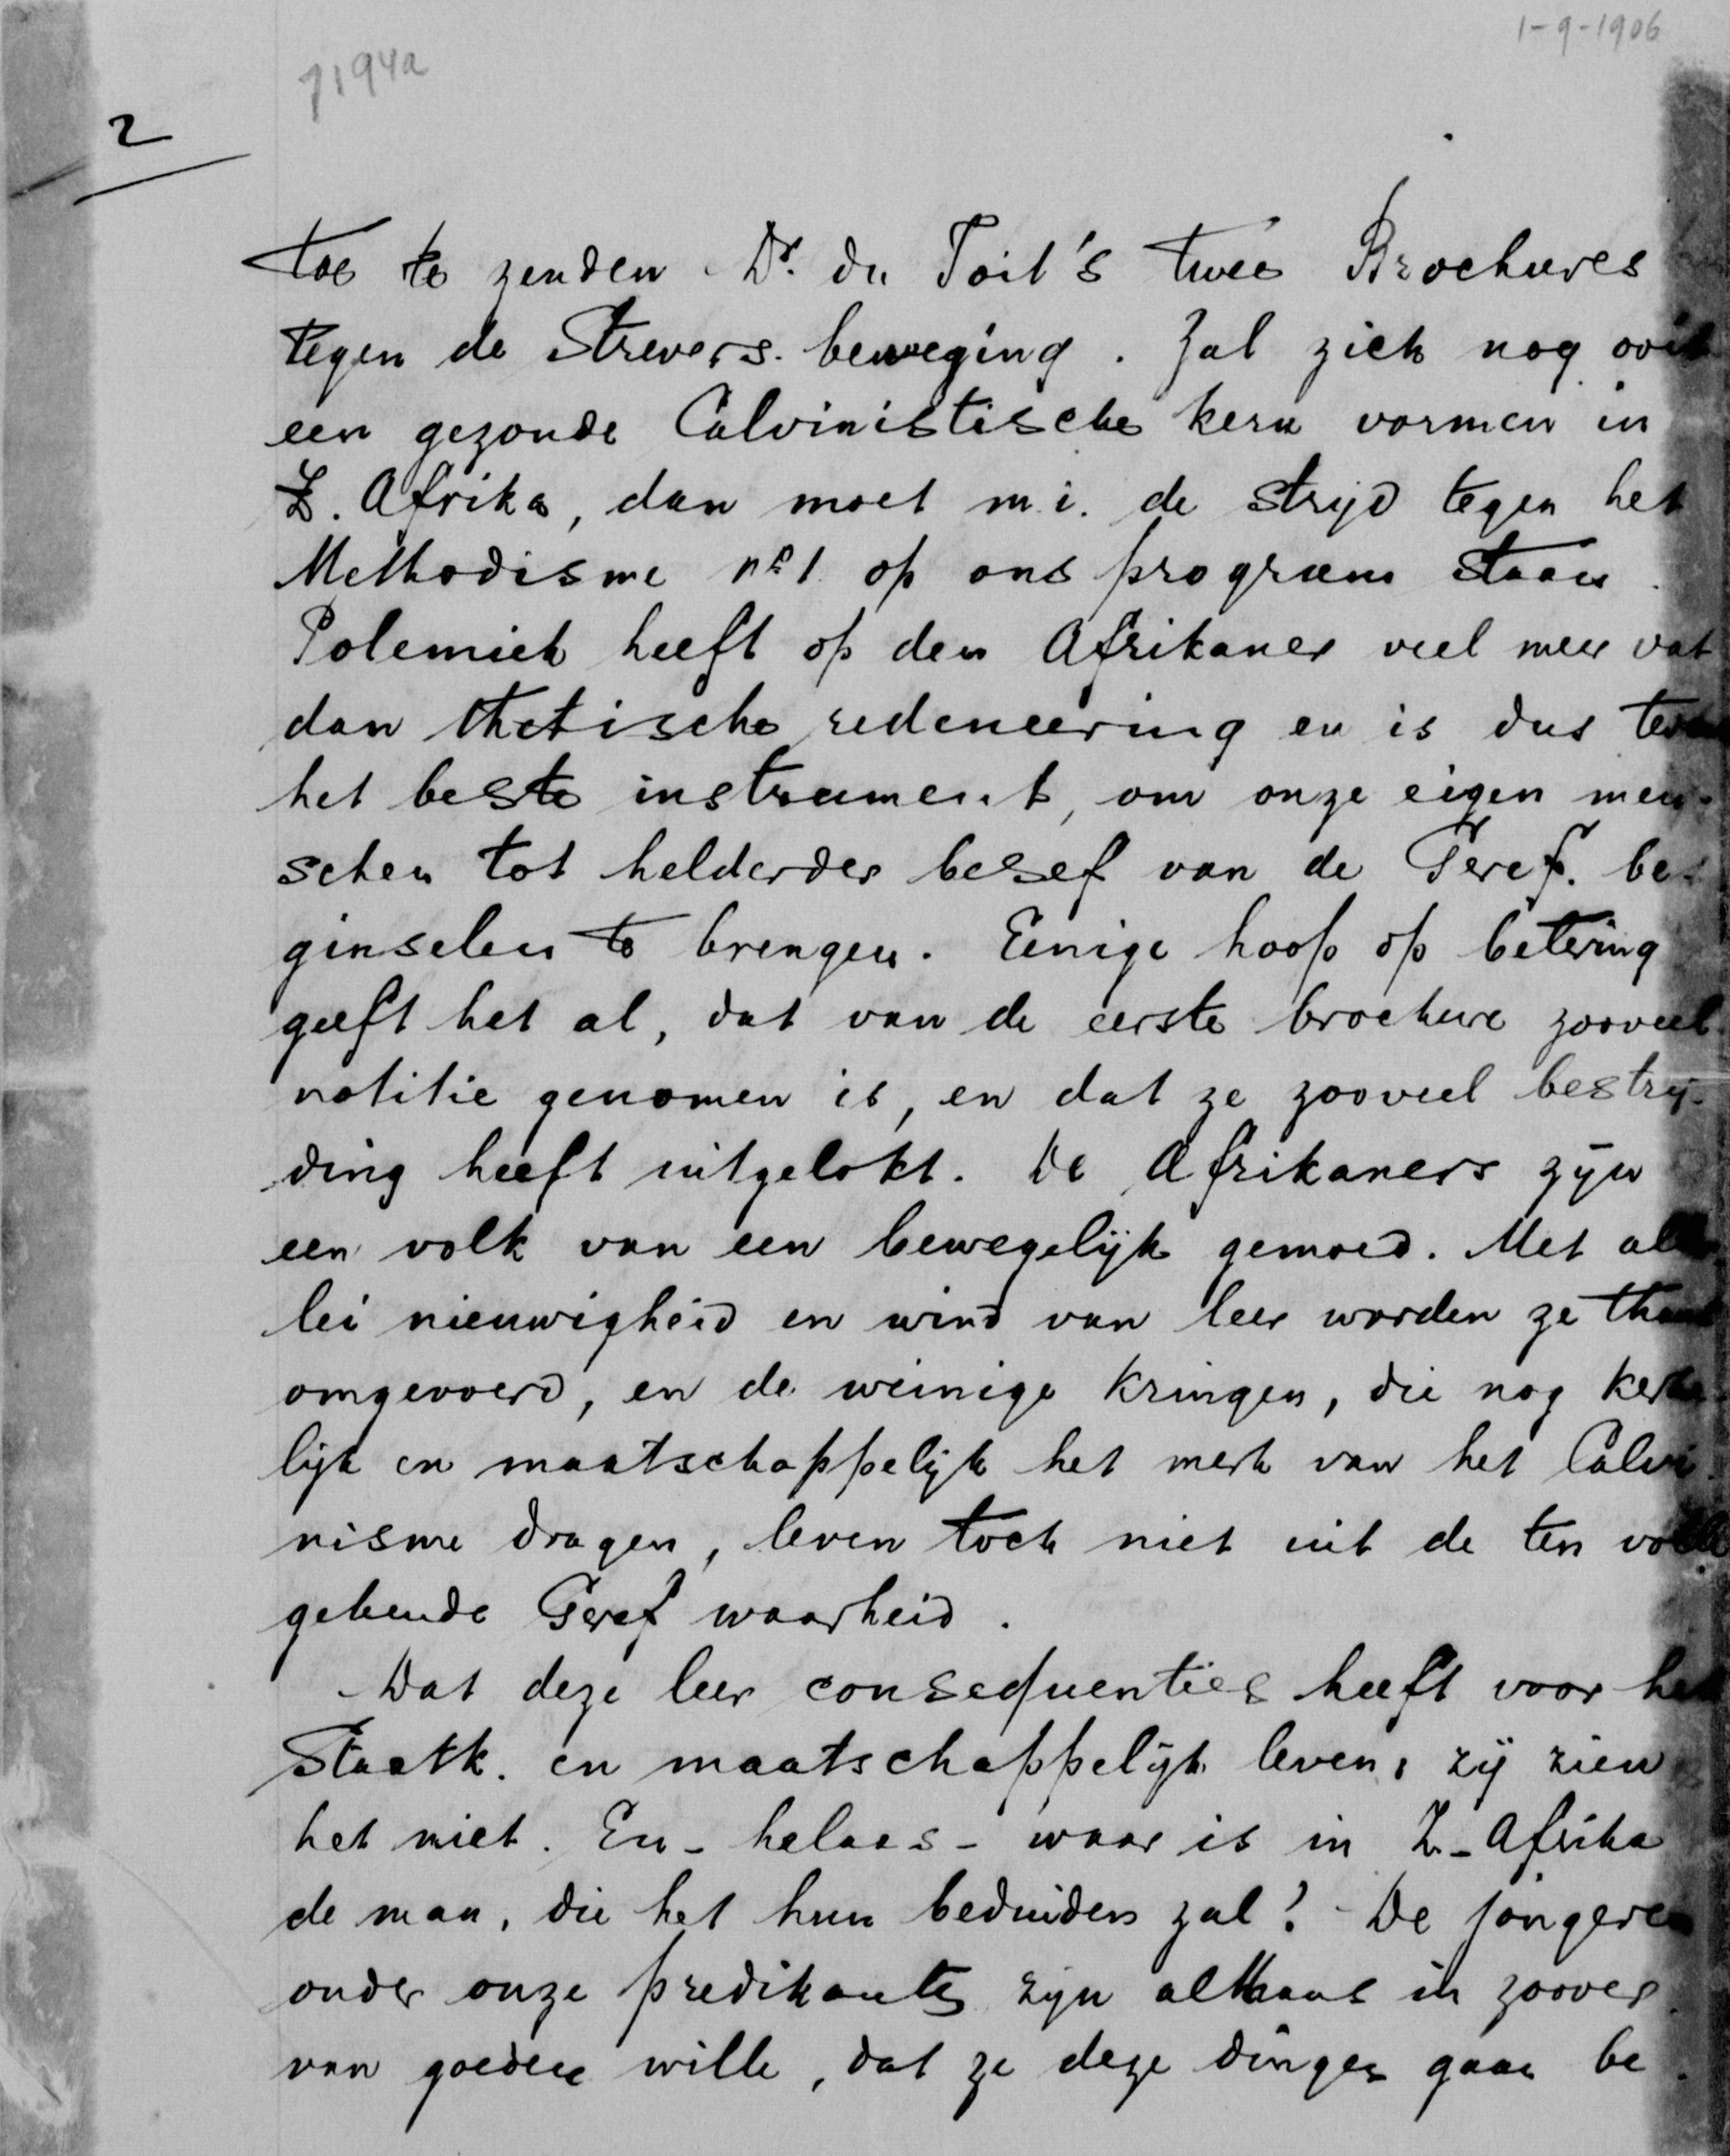 1-9-1906
7194a
2
toe te zenden Dr. du Toit's twee Brochures
tegen de Strevers-beweging. Zal zich nog ooit
een gezonde Calvinistische kern vormen in
Z. Afrika, dan moet m.i. de strijd tegen het
Methodisme no 1 op ons program staan.
Polemiek heeft op den Afrikaner veel meer vat
dan thetische redeneering en is dus
het beste instrument, om onze eigen men-
schen tot helderder besef van de Geref. be-
ginselen te brengen. Eenige hoop op betering
geeft het al, dat van de eerste brochure zooveel
notitie genomen is, en dat ze zooveel bestrij-
ding heeft uitgelokt. De Afrikaners zijn
een volk van een bewegelijk gemoed. Met aller
lei nieuwigheid en wind van leer worden ze thans
omgevoerd, en de weinige kringen, die nog kerke
lijk en maatschappelijk het merk van het Calvi
nisme dragen, leven toch niet uit de ten volle
gekende Geref waarheid.
Dat deze leer consequenties heeft voor het
Staatk. en maatschappelijk leven, zij zien
het niet. En - helaas - waar is in Z-Afrika
de man, die het hun beduiden zal? De jongere
onder onze predikanten zijn althans in zoover
van goeden wille, dat ze deze dingen gaan be